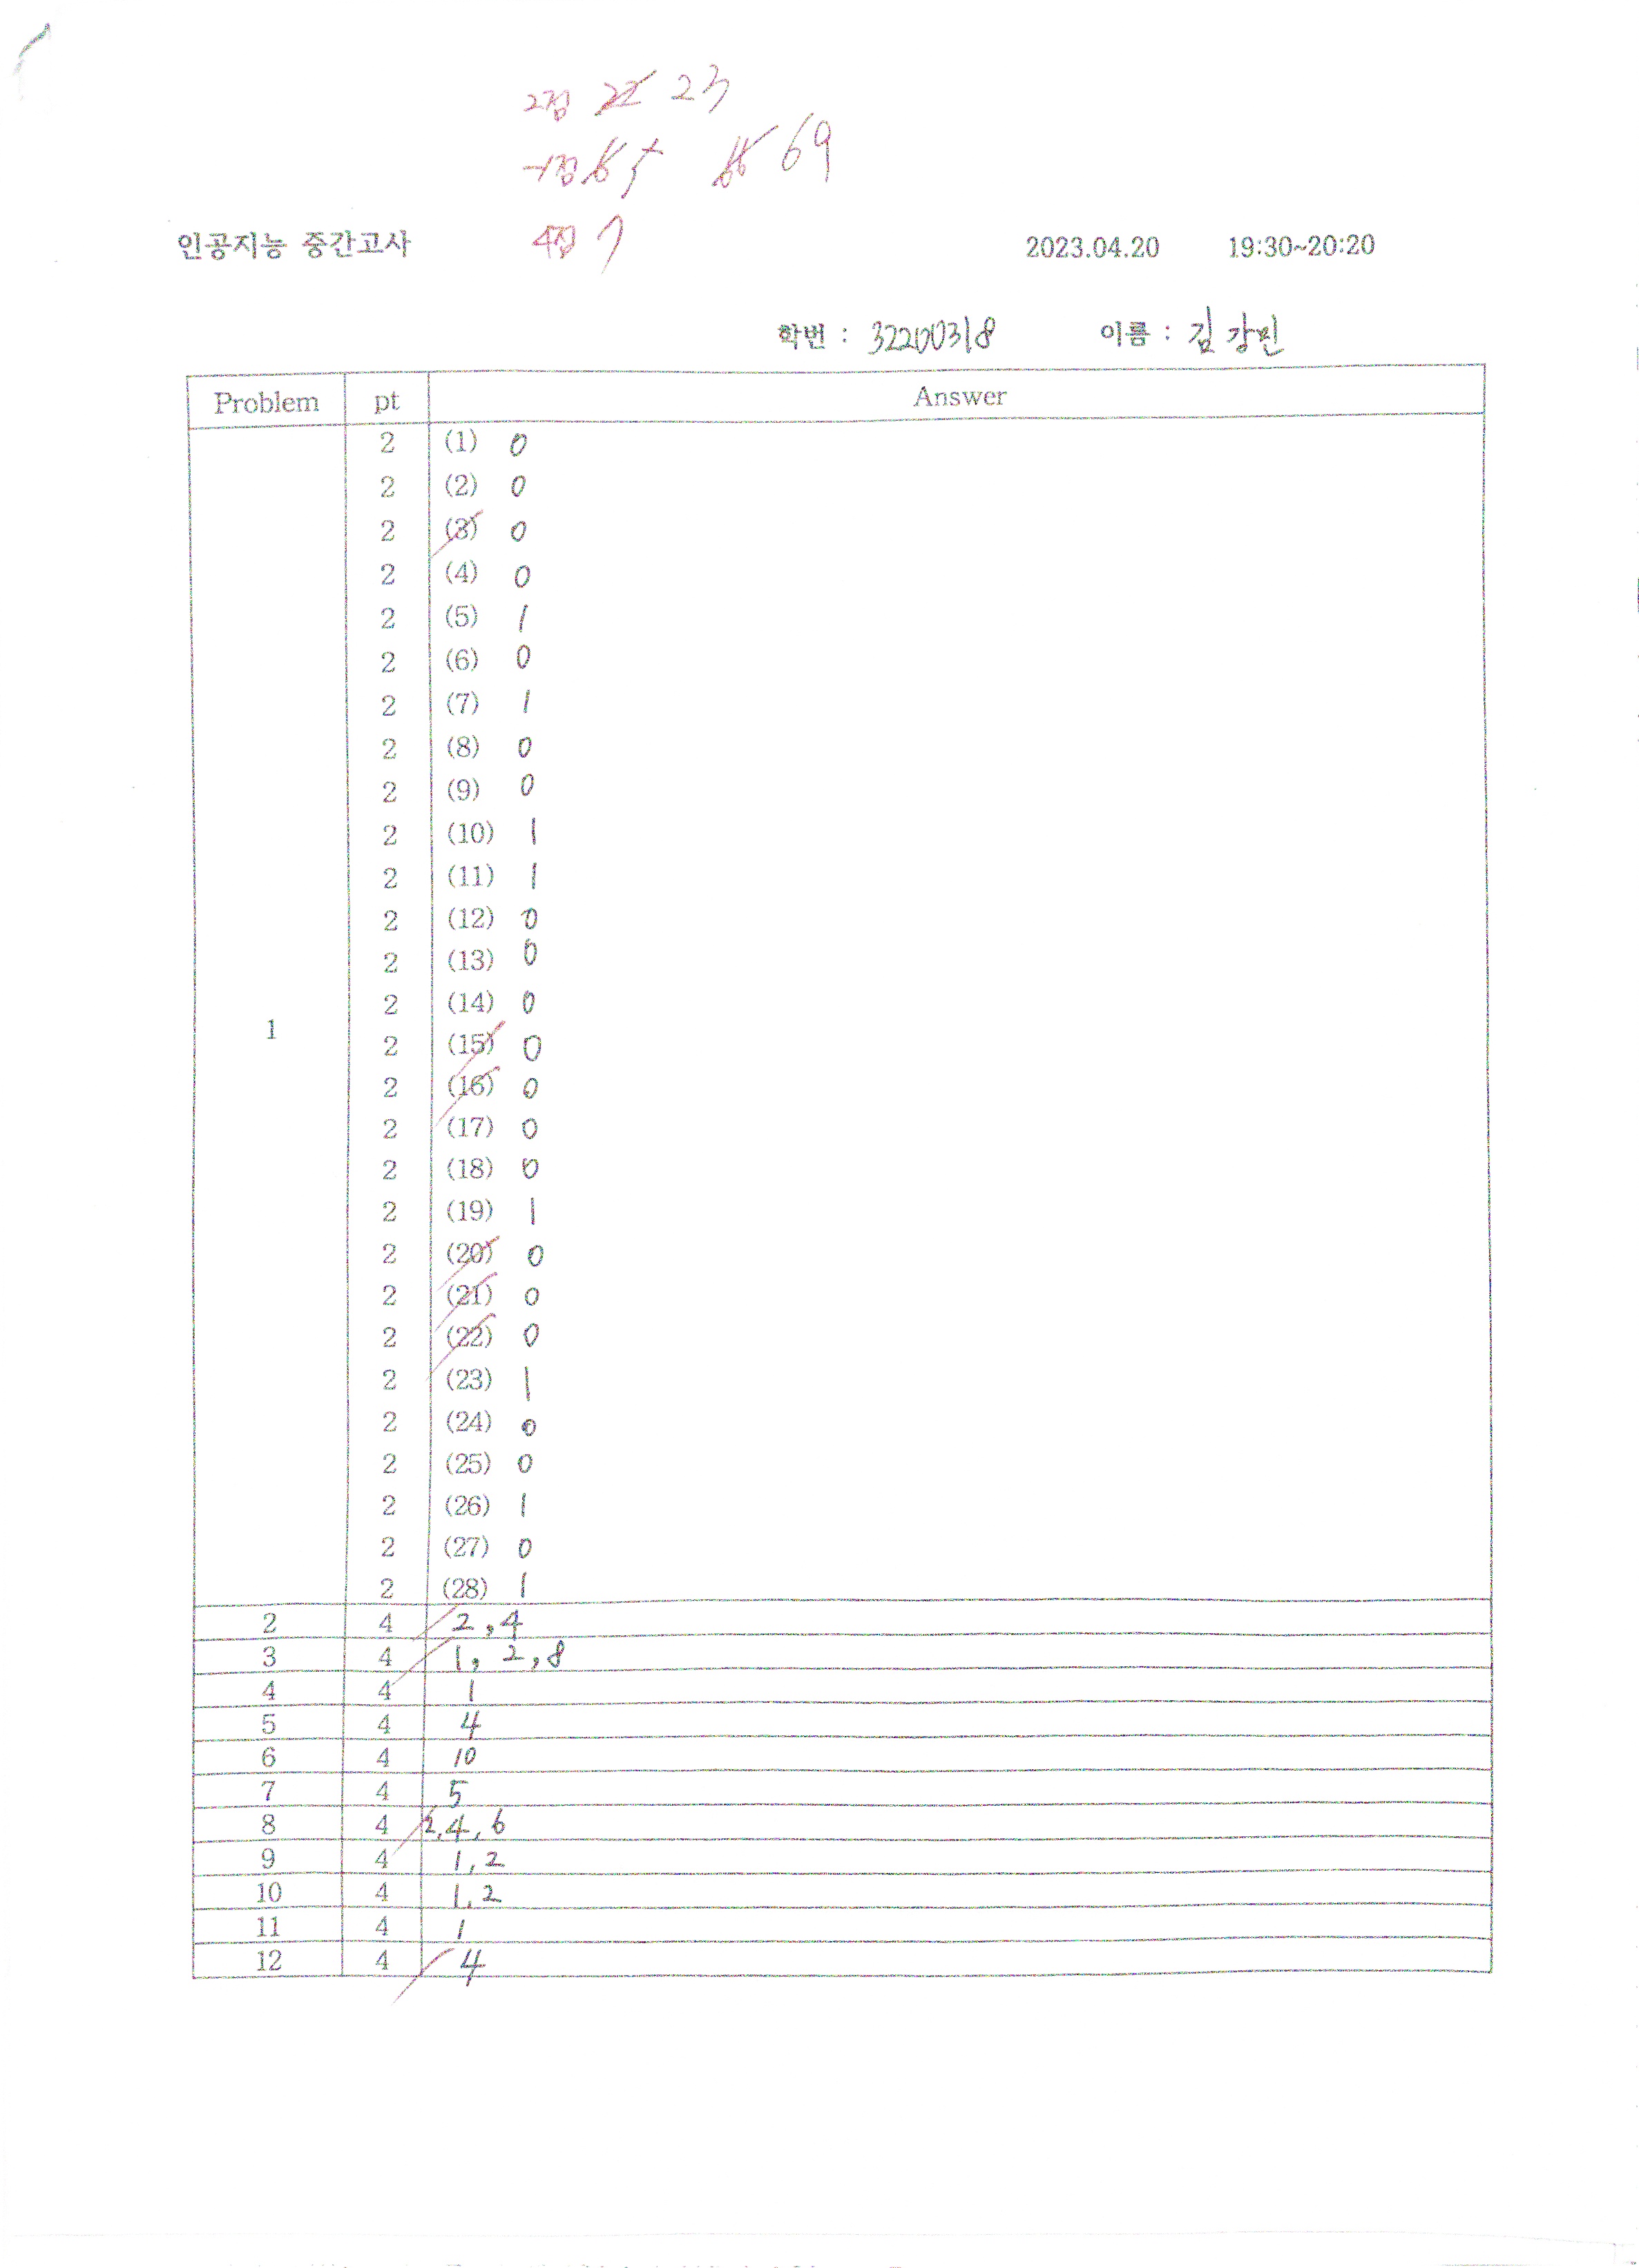 2점 22 23
-1점 65 66 69
4점 7
인공지능 중간고사 2023.04.20 19:30~20:20
학번 : 32200318 이름 : 김강민
Problem pt Answer
2 (1) 0
2 (2) 0
2 (3) 0
2 (4) 0
2 (5) 1
2 (6) 0
2 (7) 1
2 (8) 0
2 (9) 0
2 (10) 1
2 (11) 1
2 (12) 0
2 (13) 0
2 (14) 0
1
2 (15) 0
2 (16) 0
2 (17) 0
2 (18) 0
2 (19) 1
2 (20) 0
2 (21) 0
2 (22) 0
2 (23) 1
2 (24) 0
2 (25) 0
2 (26) 1
2 (27) 0
2 (28) 1
2 4 2,4
3 4 1,2,8
4 4 1
5 4 4
6 4 10
7 4 5
8 4 2,4,6
9 4 1,2
10 4 1,2
11 4 1
12 4 4